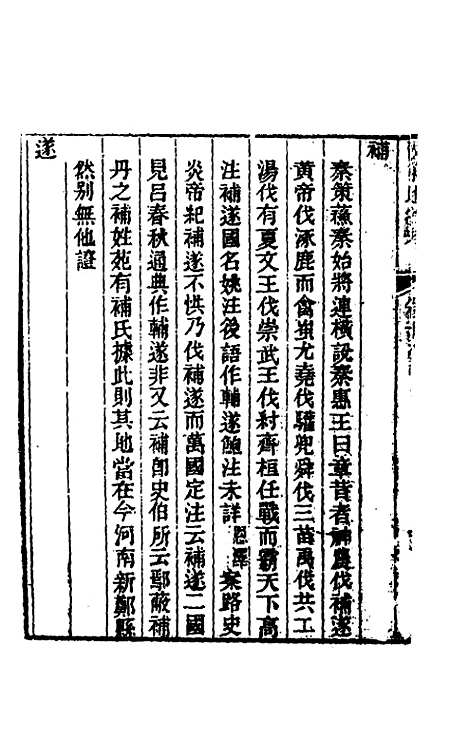 補
秦策蘇秦始將連橫說秦惠王曰章昔者神農伐補遂
黃帝伐涿鹿而禽蚩尤堯伐驩兜舜伐三苗禹伐共工
湯伐有夏文王伐崇武王伐紂齊桓任戰而霸天下高
注補遂國名姚注後語作輔遂鮑注未詳恩澤案路史
炎帝紀補遂不恭乃伐補遂而萬國定注云補遂二國
見呂春秋通典作輔遂非又云補卽史伯所云鄢蔽補
丹之補姓苑有補氏據此則其地當在今河南新鄭縣
然別無他證
遂